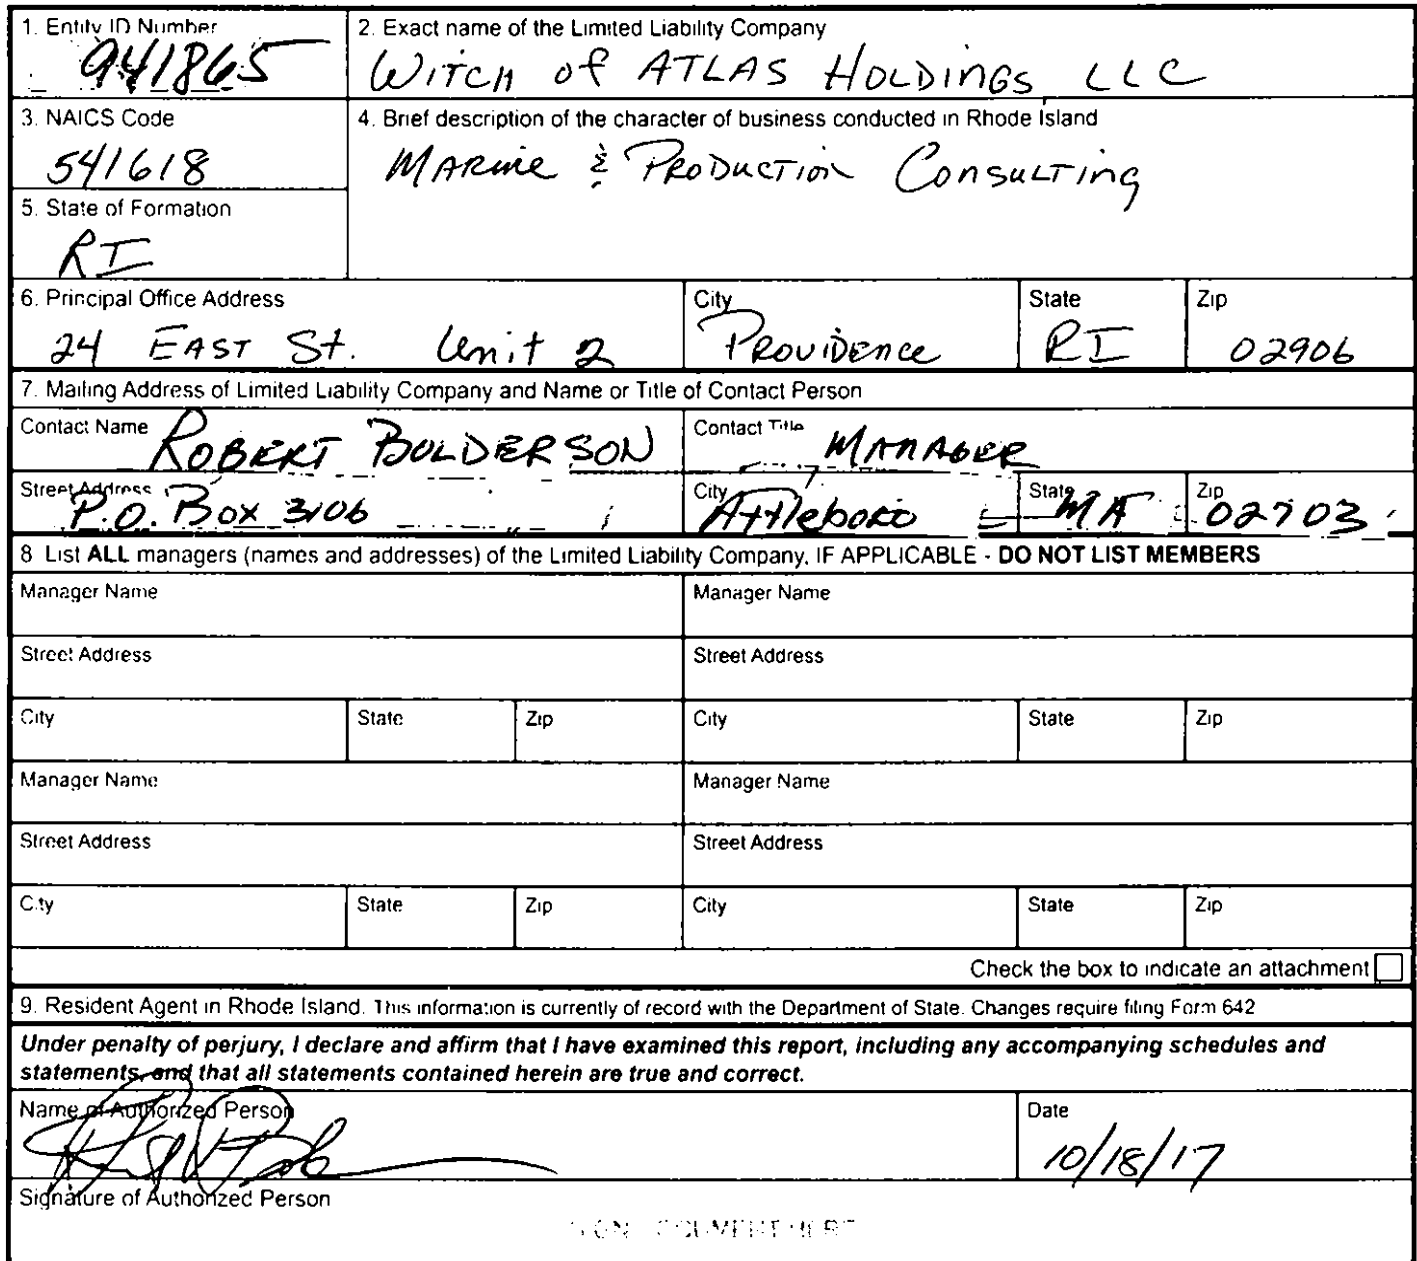 1. Entity ID Number
941865
2. Exact name of the Limited Liability Company
Witch of Atlas Holdings LLC
3. NAICS Code
541618
4. Brief description of the character of business conducted in Rhode Island
Marine & Production Consulting
5. State of Formation
RI
6. Principal Office Address
24 East St. Unit 2
City
Providence
State
RI
Zip
02906
7. Mailing Address of Limited Liability Company and Name or Title of Contact Person
Contact Name
Robert Bolderson
Contact Title
Manager
Street Address
P.O. Box 3106
City
Attleboro
State
MA
Zip
02703
8 List ALL managers (names and addresses) of the Limited Liability Company, IF APPLICABLE - DO NOT LIST MEMBERS
Manager Name
Manager Name
Street Address
Street Address
City State Zip City State Zip
Manager Name
Manager Name
Street Address
Street Address
City State Zip City State Zip
Check the box to indicate an attachment
9. Resident Agent in Rhode Island. This information is currently of record with the Department of State. Changes require filing Form 642
Under penalty of perjury, I declare and affirm that I have examined this report, including any accompanying schedules and
statements, and that all statements contained herein are true and correct.
Name of Authorized Person
Date
10/18/17
Signature of Authorized Person